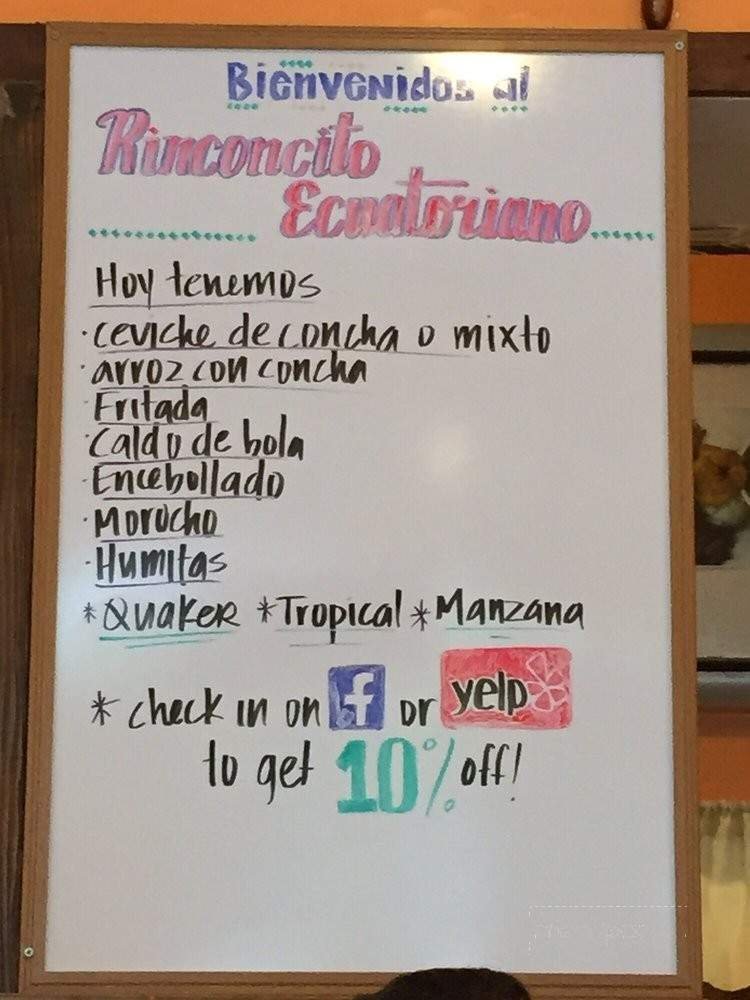 Bienvenidos al
Rinconcito
Ecuatoriano
Hoy tenemos
·ceviche de concha o mixto
·arroz con concha
·Fritada
·Caldo de bola
·Encebollado
·Morocho
·Humitas
*QUAKER *Tropical *Manzana
*check in on f or yelp
to get 10% off!